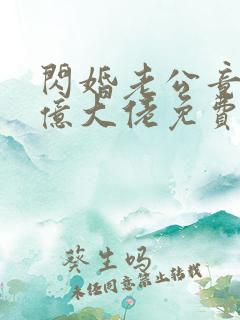 閃婚老公竟
億大佬免費
葵生吗
未经同意禁止转载